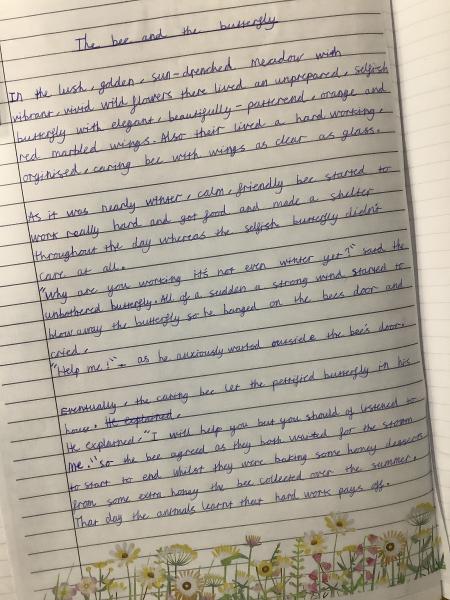 The bee and the butterfly
In the lush, golden, sun-drenched meadow with
vibrant, vivid wild flowers there lived an unprepared, selfish
butterfly with elegant, beautifully-patternd, orange and
red marbled wings. Also their lived a hard working,
orginised, caring bee with wings as clear as glass.
As it was nearly winter, calm, friendly bee started to
work really hard and got food and made a shelter
throughout the day whereas the selfish butterfly didn't
care at all.
"Why are you working it's not even winter yet?" said the
unbothered butterfly. All of a sudden a strong wind started to
blow away the butterfly so he banged on the bees door and
cried.
"Help me!" - as he anxiously waited outside the bee's door.
Eventually, the caring bee let the petrified butterfly in his
house. He explained.
He explained. "I will help you but you should of listened to
me." so the bee agreed as they both waited for the storm
to start to end whilst they were baking some honey desserts
from some extra honey the bee collected over the summer.
That day the animals learnt that hard work pays off.